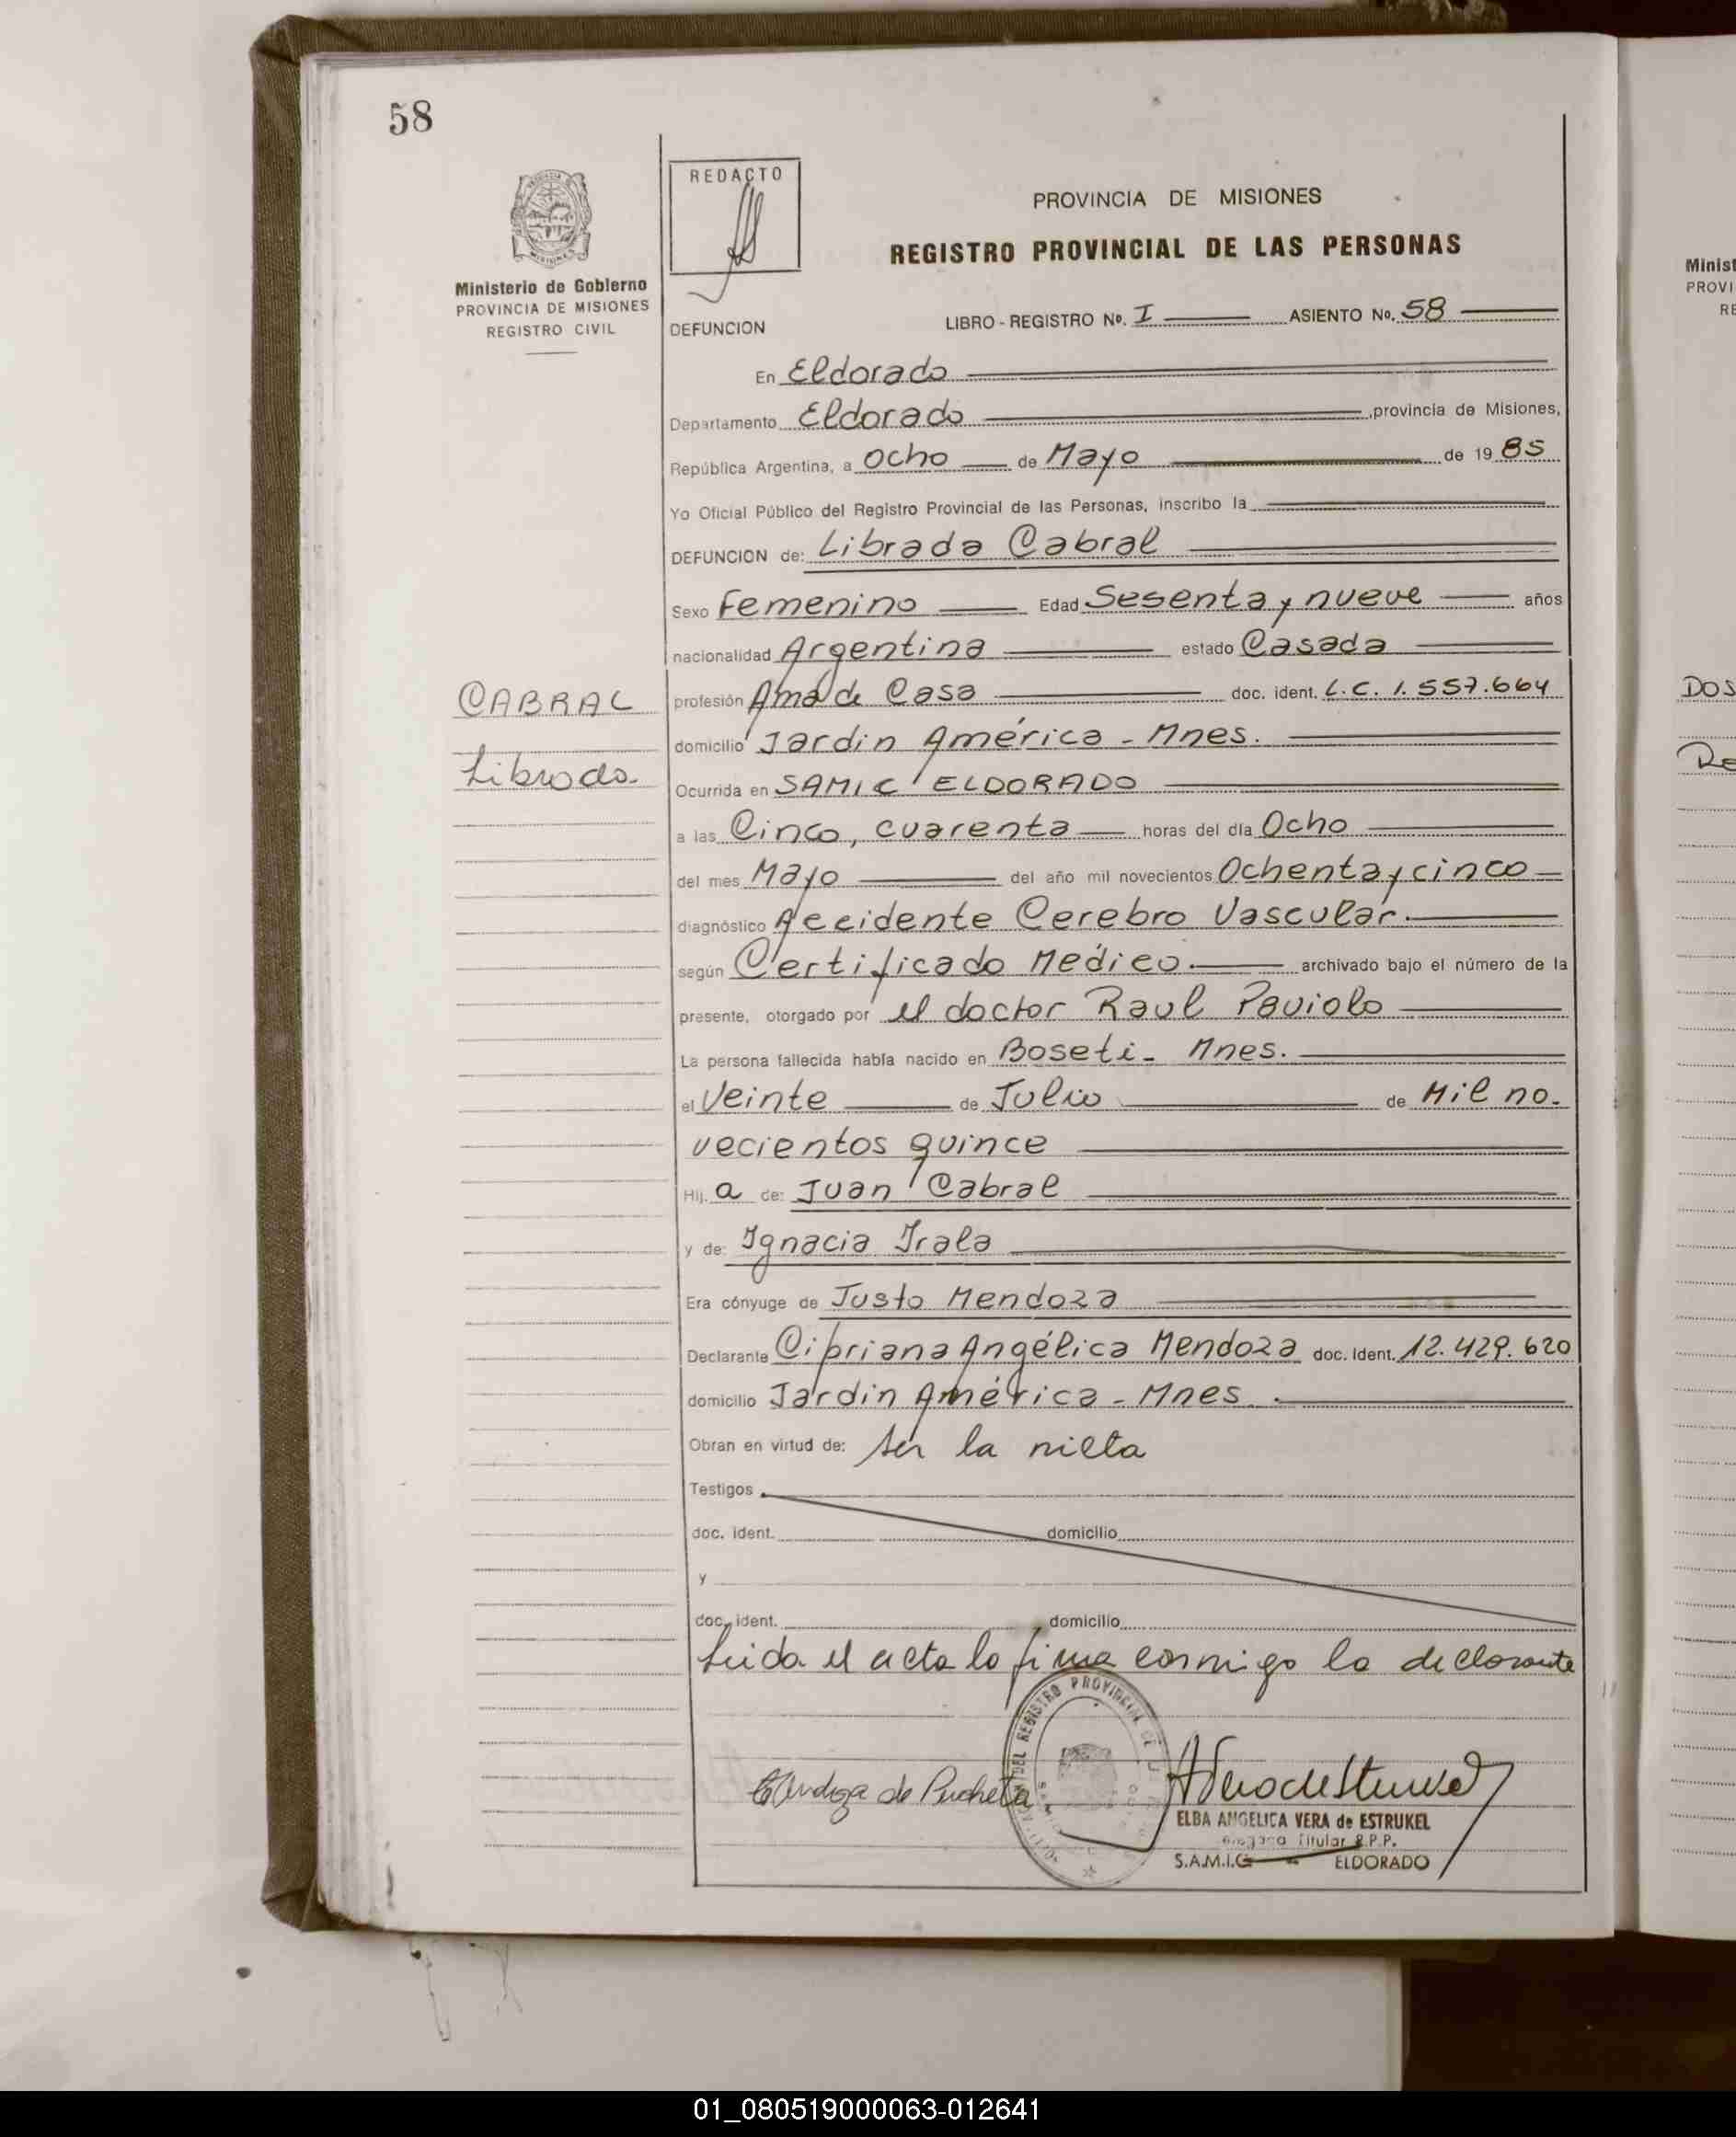 58
REDACTO
PROVINCIA DE MISIONES
REGISTRO PROVINCIAL DE LAS PERSONAS
Ministerio de Gobierno
PROVINCIA DE MISIONES
REGISTRO CIVIL
DEFUNCION LIBRO - REGISTRO No. I ASIENTO No. 58
En Eldorado
Departamento Eldorado , provincia de Misiones,
República Argentina, a Ocho de Mayo de 19 85
Yo Oficial Público del Registro Provincial de las Personas, inscribo la
DEFUNCION de: Librada Cabral
Sexo Femenino Edad Sesenta y nueve años
nacionalidad Argentina estado Casada
CABRAL
Librada
profesión Ama de Casa doc. ident. L.C. 1.557.664
domicilio Jardin América - Mnes.
Ocurrida en SAMIC ELDORADO
a las Cinco, cuarenta horas del día Ocho
del mes Mayo del año mil novecientos Ochenta y cinco
diagnóstico Accidente Cerebro Vascular.
según Certificado Médico. archivado bajo el número de la
presente, otorgado por el doctor Raul Paviolo
La persona fallecida había nacido en Boseti - Mnes.
el Veinte de Julio de Mil no-
vecientos quince
Hij a de: Juan Cabral
y de: Ignacia Irala
Era cónyuge de Justo Mendoza
Declarante Cipriana Angélica Mendoza doc. Ident. 12.429.620
domicilio Jardin América - Mnes.
Obran en virtud de: ser la nieta
Testigos
doc. ident. domicilio
y
doc. ident. domicilio
Leida el acta la firma conmigo la declarante
DEL REGISTRO PROVINCIAL DE
Mendoza de Pucheta
ELBA ANGELICA VERA de ESTRUKEL
Titular R.P.P.
S.A.M.I.C ELDORADO
Minist
PROVI
RE
DOS
RE
01_080519000063-012641